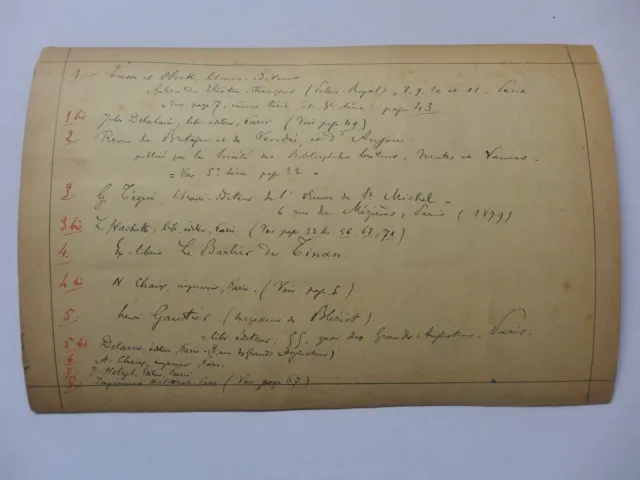 1. Tresse et Stock, libraires-éditeurs
Galerie du Théâtre-Français (Palais-Royal), 8. 9. 10 et 11. Paris
= Voir page 7, même série, et 3e série: page 43
1 bis Jules Delalain, lib. édit., Paris (Voir page 49)
2 Revue de Bretagne et de Vendée et d'Anjou
publiée par la Société des Bibliophiles bretons, Nantes et Vannes.
= Voir 5e série. page 22 =
3 G. Téqui libraire-éditeur de l'Œuvre de St Michel
6 rue de Mézières, Paris (1879)
3 bis L. Hachette, lib. éditr, Paris. (Voir page 22 56. 68, 71)
4. Ex-libris Le Barbier de Tinan
4 bis N. Chaix, imprimeur, Paris. (Voir page 5)
5. Henri Gautier (successeur de Blériot)
= lib. éditeur, 55. quai des Grands-Augustins. Paris.
5 bis Delarue, éditeur, Paris (3, rue des Grands Augustins)
6. A. Chaix, imprimeur, Paris.
7. J. Hetzel, éditr, Paris
8. Imprimerie Nationale, Paris (Voir page 67)